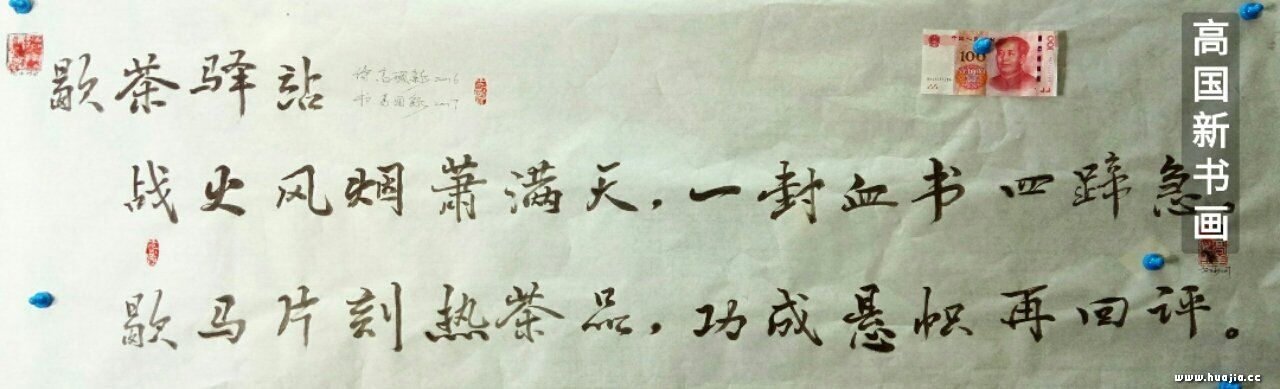 歇茶驿站
诗 高国新 2016
书 高国新 2017
战火风烟萧满天，一封血书四蹄急。
歇马片刻热茶品，功成悬帜再回评。
100
高国新书画
www.huajia.cc